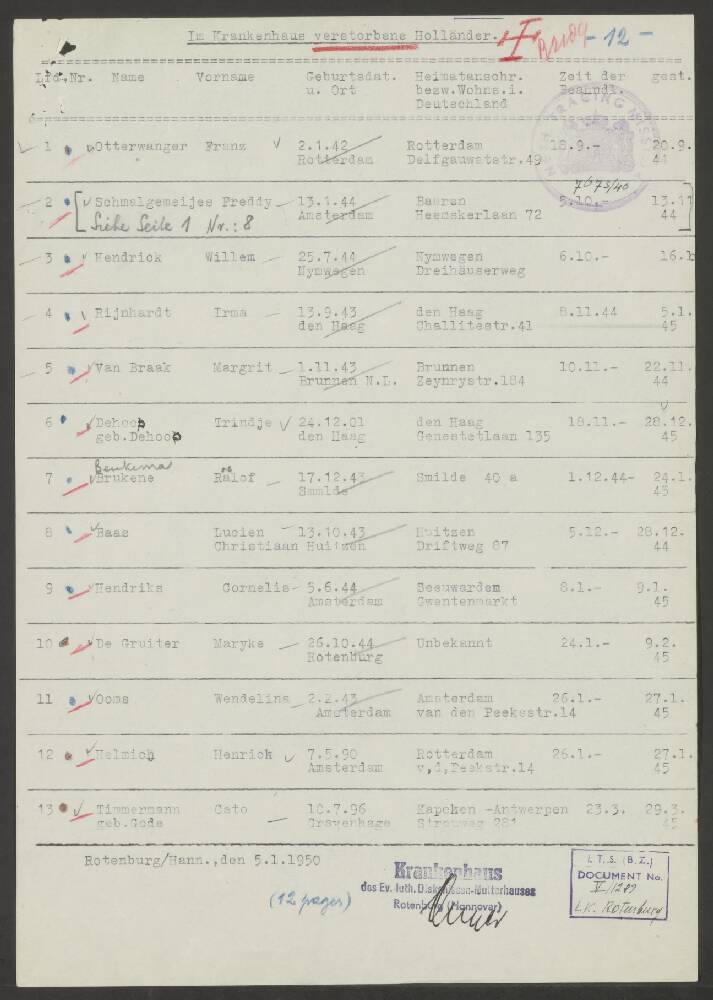 Im Krankenhaus verstorbene Holländer. - 12 -
Lfd.Nr. Name Vorname Geburtsdat. Heimatanschr. Zeit der gest.
u. Ort bezw.Wohns.i. Beahndl.
Deutschland
1 Otterwanger Franz 2.1.42 Rotterdam 18.9.- 20.9.
Rotterdam Delfgauwstetr.49 44
7673/40
2 Schmalgemeijes Freddy 13.1.44 Baaren 5.10.- 13.11
Siehe Seite 1 Nr.: 8 Amsterdam Heemskerlaan 72 44
3 Hendrick Willem 25.7.44 Nymwegen 6.10.- 16.1
Nymwegen Dreihäuserweg
4 Rijnhardt Irma 13.9.43 den Haag 8.11.44 5.1.
den Haag Challitestr.41 45
5 Van Braak Margrit 1.11.43 Brunnen 10.11.- 22.11.
Brunnen N.L. Zeynrystr.184 44
6 Dehoop Trindje 24.12.01 den Haag 18.11.- 28.12.
geb.Dehoop den Haag Genestetlaan 135 45
Beukema
7 Brukene Rälof 17.12.43 Smilde 40 a 1.12.44- 24.1.
Smmlde 45
8 Baas Lucien 13.10.43 Huitzen 5.12.- 28.12.
Christiaan Huitzen Driftweg 87 44
9 Hendriks Cornelis 5.6.44 Seeuwardem 8.1.- 9.1.
Amsterdam Gwentenmarkt 45
10 De Gruiter Maryke 26.10.44 Unbekannt 24.1.- 9.2.
Rotenburg 45
11 Ooms Wendelina 2.2.43 Amsterdam 26.1.- 27.1.
Amsterdam van den Peeksstr.14 45
12 Helmich Henrick 7.5.90 Rotterdam 26.1.- 27.1.
Amsterdam v,d,Peekstr.14 45
13 Timmermann Cato 10.7.96 Kapcken -Antwerpen 23.3. 29.3.
geb.Gode Gravenhage Strauweg 281 45
Rotenburg/Hann.,den 5.1.1950
(12 pages)
Krankenhaus
des Ev.-luth. Diakonissen-Mutterhauses
Rotenburg (Hannover)
I.T.S. (B.Z.)
DOCUMENT No.
V/1289
L.K. Rotenburg